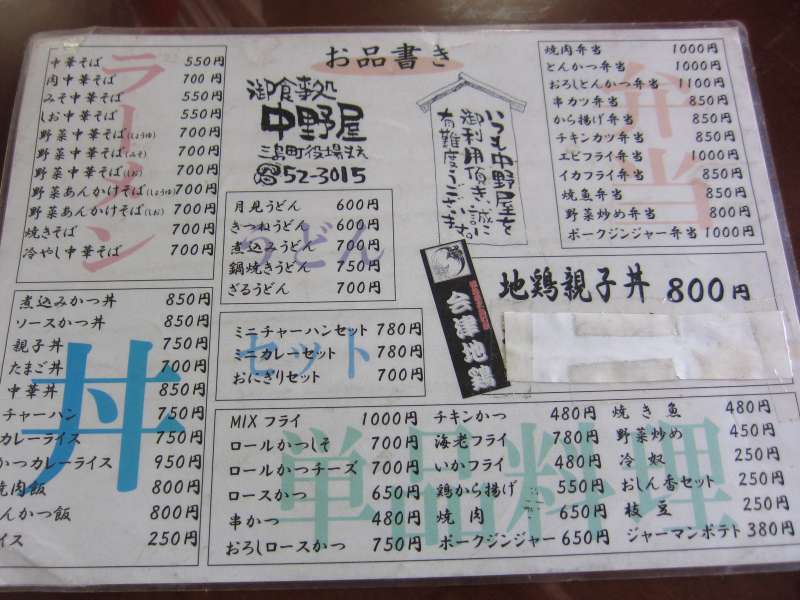 お品書き
ラーメン
中華そば 550円
肉中華そば 700円
みそ中華そば 550円
しお中華そば 550円
野菜中華そば(しょうゆ) 700円
野菜中華そば(みそ) 700円
野菜中華そば(しお) 700円
野菜あんかけそば(しょうゆ) 700円
野菜あんかけそば(しお) 700円
焼きそば 700円
冷やし中華そば 700円
御食事処
中野屋
三島町役場まえ
☎52-3015
いつも中野屋を
御利用頂き、誠に
有難度うございます。
弁当
焼肉弁当 1000円
とんかつ弁当 1000円
おろしとんかつ弁当 1100円
串カツ弁当 850円
から揚げ弁当 850円
チキンカツ弁当 850円
エビフライ弁当 1000円
イカフライ弁当 850円
焼魚弁当 850円
野菜炒め弁当 800円
ポークジンジャー弁当 1000円
うどん
月見うどん 600円
きつねうどん 600円
煮込みうどん 700円
鍋焼きうどん 750円
ざるうどん 700円
会津地鶏
地鶏親子丼 800円
丼
煮込みかつ丼 850円
ソースかつ丼 850円
親子丼 750円
たまご丼 700円
中華丼 850円
チャーハン 750円
カレーライス 750円
かつカレーライス 950円
焼肉飯 800円
とんかつ飯 800円
イス 250円
セット
ミニチャーハンセット 780円
ミニカレーセット 780円
おにぎりセット 700円
単品料理
MIXフライ 1000円
ロールかつしそ 700円
ロールかつチーズ 700円
ロースかつ 650円
串かつ 480円
おろしロースかつ 750円
チキンかつ 480円
海老フライ 780円
いかフライ 480円
鶏から揚げ 550円
焼肉 650円
ポークジンジャー 650円
焼き魚 480円
野菜炒め 450円
冷奴 250円
おしん香セット 250円
枝豆 250円
ジャーマンポテト 380円